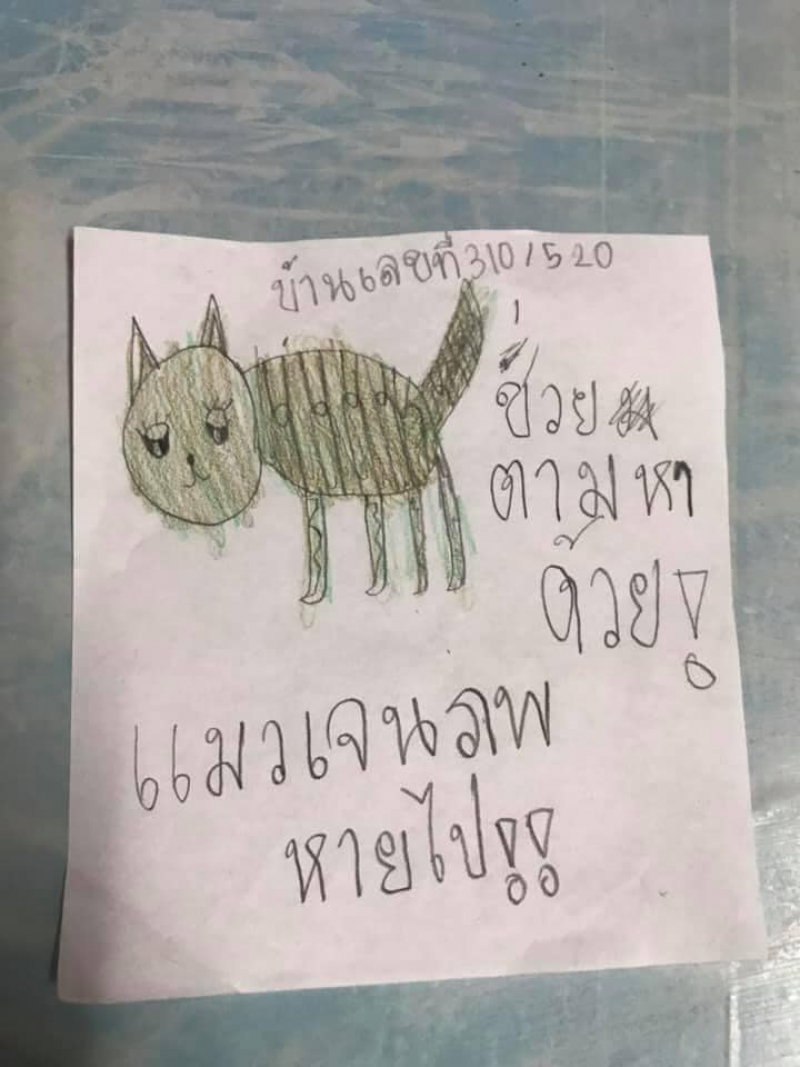 บ้านเลขที่ 310/520
ช่วย
ตามหา
ด้วย!
แมวเจนภพ
หายไป!!